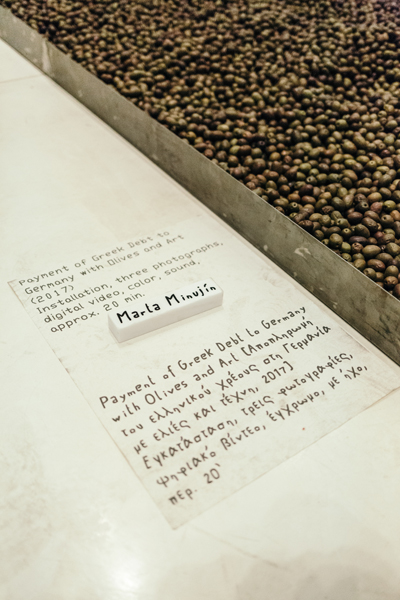 Payment of Greek Debt to
Germany with Olives and Art
(2017)
Installation, three photographs,
digital video, color, sound.
approx. 20 min.
Marta Minujín
Payment of Greek Debt to Germany
with Olives and Art [Αποπληρωμή
του ελληνικού χρέους στη Γερμανία
με ελιές και τέχνη, 2017]
Εγκατάσταση, τρεις φωτογραφίες,
ψηφιακό βίντεο, έγχρωμο, με ήχο,
περ. 20'